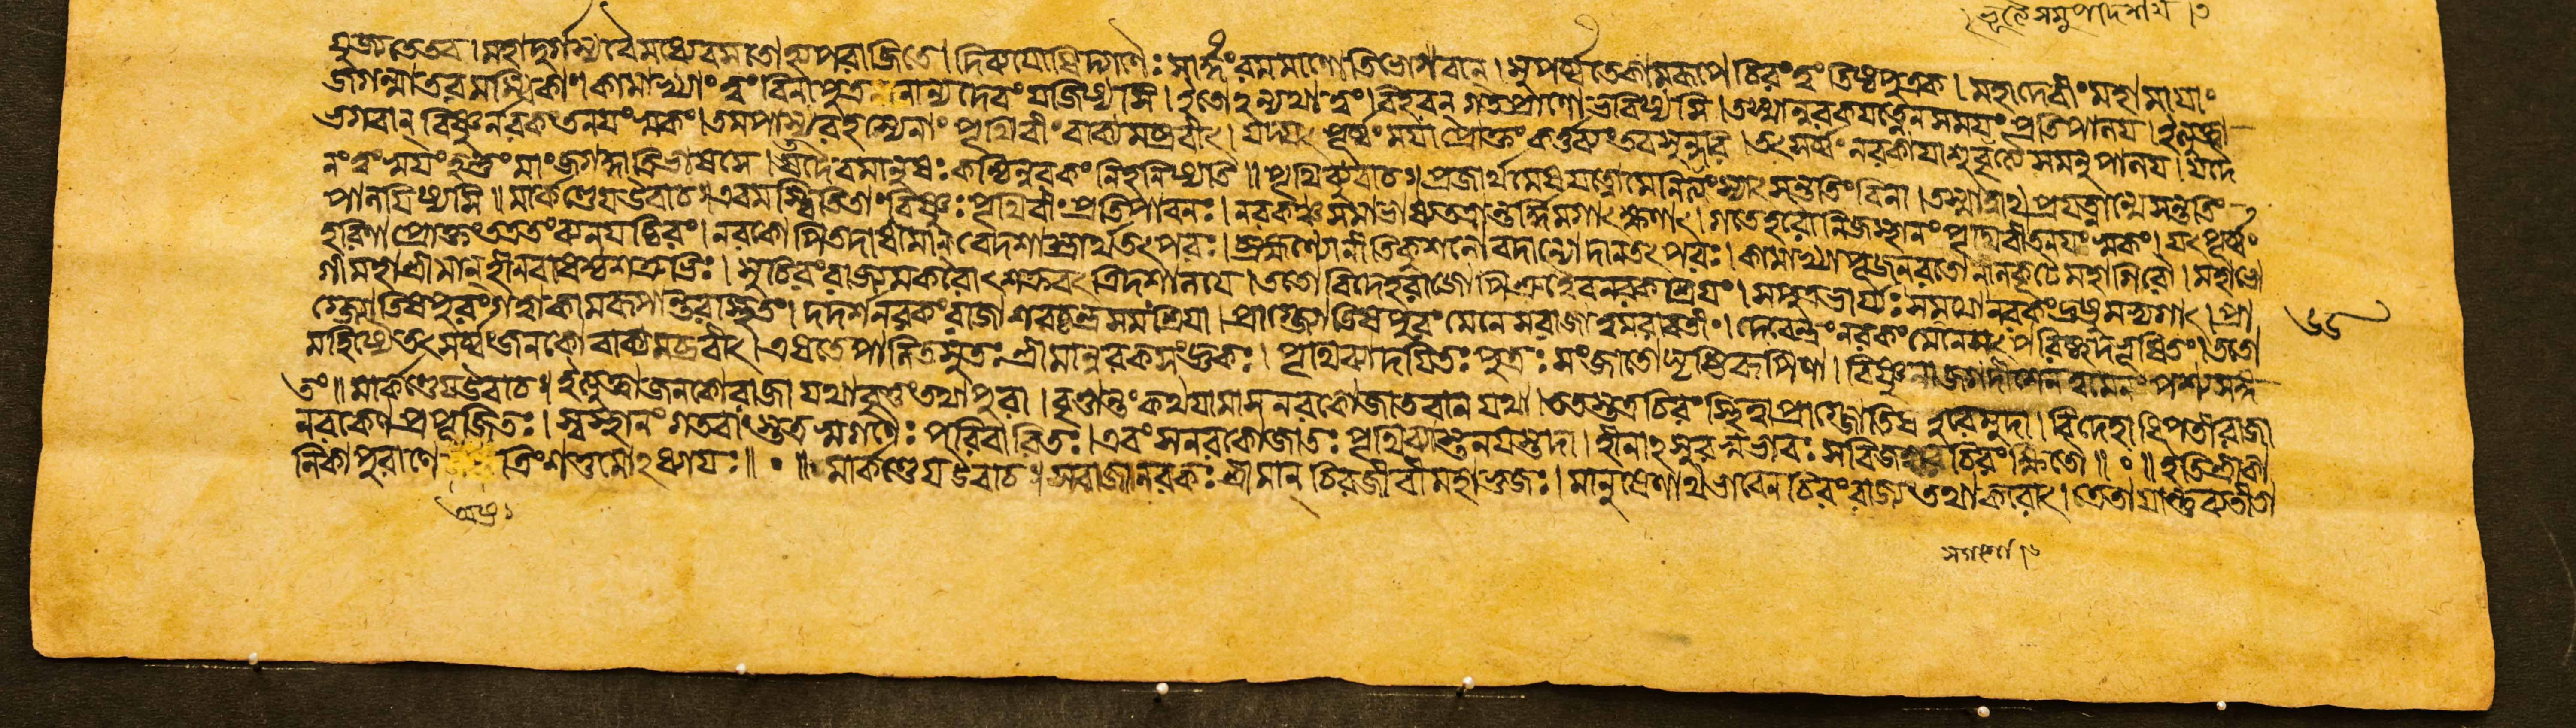 যুজ্যতে তব । মহাদুর্গম্য বৈ মধ্যে রমতোহ্যপরাজিতে । দিব্যযোষিদ্গণৈঃ সার্দ্ধং রমমাণোতিভোগবান্ । সুপর্ব্বতে কামরূপে চিরং ত্বং তিষ্ঠ পুত্রক । মহাদেবীং মহামায়াং
জগন্মাতরমম্বিকাং । কামাখ্যাং ত্বং বিনা পুত্র নান্যদেবং যজিষ্যসি । ইতোঽন্যথা ত্বং বিহরন্ গতপ্রাণো ভবিষ্যসি । তস্মান্নরক যত্নেন সময়ং প্রতিপালয় । ইত্যুক্ত্বা
ভগবান্ বিষ্ণুর্নরকং তনয়ং স্বকং । তমপাস্য রহস্যেনাং পৃথিবীং বাক্যমব্রবীৎ । যদ্যৎ পূর্ব্বং ময়া প্রোক্তং কর্ত্তব্যং তব সুন্দরি । তৎ সর্ব্বং নরকায়াশু সমনুপালয় । যদৈ
নং ত্বং স্বয়ং হন্তুং মাং জগদ্ধাত্রি ভাষসে । তদৈব মানুষঃ কশ্চিন্নরকং নিহনিষ্যতি ॥ পৃথিব্যুবাচ । প্রজার্থমেষ যত্নো মে স্যাৎ সন্ততিং বিনা । তস্মান্নাথ প্রযত্নান্মে সন্ততিং
পালয়িষ্যসি ॥ মার্কণ্ডেয় উবাচ । এবমস্ত্বিতি তাং বিষ্ণুঃ পৃথিবীং প্রতিপাবনঃ । নরকঞ্চ সমাভাষ্য তত্রান্তর্দ্ধিমগাৎ ক্ষণাৎ । গতে হরৌ নিজস্থানং পৃথিবী তনয়ং স্বকং । যৎ পূর্ব্বং
হরিণা প্রোক্তং তত্র তং চিরং । নরকোপি তদা ধীমান্ বেদশাস্ত্রার্থতৎপরঃ । ব্রহ্মণ্যো নীতিকুশলো বদান্যো দানতৎপরঃ । কামাখ্যাপূজনরতো নীলকূটে মহাগিরৌ । মহাভো
গী মহাশ্রীমান্ শত্রুভিঃ । সুচিরং রাজ্যমকরোৎ শক্রবৎ ত্রিদশালয়ে । ততো বিদেহরাজোপি শ্রুত্বৈব নরকশ্রিয়ং । সপুত্রভার্য্যঃ সগণো নরকং দ্রষ্টুমভ্যগাৎ । প্রা
গ্জ্যোতিষপুরং গত্বা কামরূপান্তরাস্থিতং । দদর্শ নরকং রাজা শরচ্চন্দ্রসমং শ্রিয়া । প্রাগ্জ্যোতিষপুরং মেনে স রাজা ত্বমরাবতীং । দেবেন্দ্রং নরকং মেনে । ততো
মহিষ্যৈ তৎ সর্ব্বং জনকো বাক্যমব্রবীৎ । এষ তে পালিতসুতঃ শ্রীমান্নরকসংজ্ঞকঃ । পৃথিব্যা দয়িতঃ পুত্রঃ সংজাতো ঘৃষ্টিরূপিণা । বিষ্ণুনা জগদীশেন ত্বমেনং পশ্য
তং ॥ মার্কণ্ডেয় উবাচ । ইত্যুক্ত্বা জনকো রাজা যথাবৃত্তং তথা পুরা । বৃত্তান্তং কথয়ামাস নরকো জাতবান্ যথা । ততস্তত্র চিরং স্থিত্বা প্রাগ্জ্যোতিষপুরে মুদা । বিদেহাধিপতী রাজা
নরকেণ প্রপূজিতঃ । স্বস্থানং গতবাংস্তত্র স্বগণৈঃ পরিবারিতঃ । এবং স নরকো জাতঃ পৃথিব্যাস্তনয়স্তদা । হীনাঽসুরস্বভাবঃ স চিরং ক্ষিতৌ ॥ ০ ॥ ইতি শ্রীকা
লিকাপুরাণে ত্রিংশত্তমোঽধ্যায়ঃ ॥ ০ ॥ মার্কণ্ডেয় উবাচ । স রাজা নরকঃ শ্রীমান্ চিরজীবী মহাভুজঃ । মানুষেণাথ ভাবেন চিরং রাজ্যং তথাকরোৎ । ত্রেতায়ান্তু ব্যতীতা
৬৬